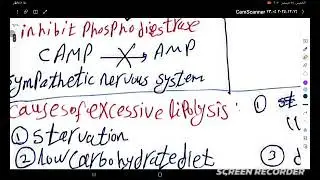 CamScanner
inhibit phosphodiestrase
CAMP → AMP
sympathetic nervous system
causes of excessive lipolysis :
① starvation
② low carbohydrate diet
①
③ d
SCREEN RECORDER